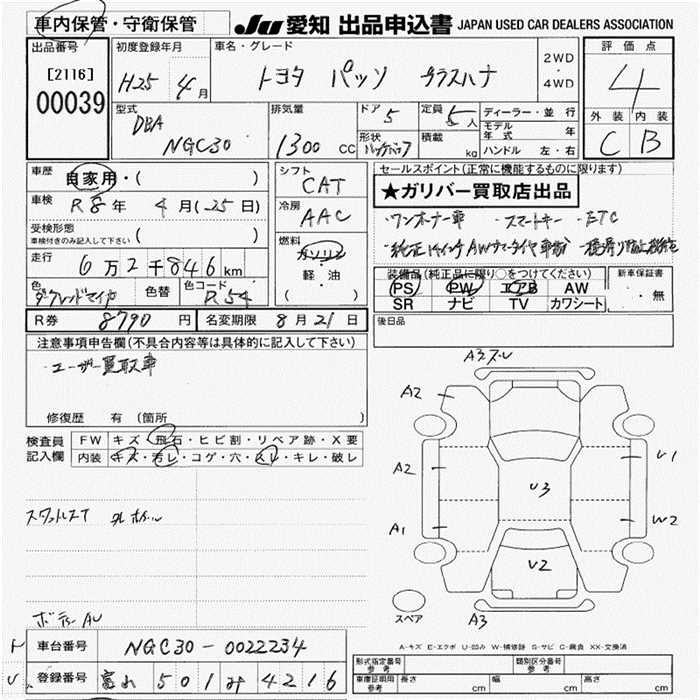 車内保管・守衛保管
JU 愛知 出品申込書 JAPAN USED CAR DEALERS ASSOCIATION
出品番号
[2116]
00039
初度登録年月
H25 4月
車名・グレード
トヨタ パッソ プラスハナ
2WD
・
4WD
評価点
4
外装 内装
C B
型式
DBA
NGC30
排気量
1300 CC
ドア 5
形状
ハッチバック
定員 5人
積載 kg
ディーラー・並行
モデル年式 年
ハンドル 左・右
車歴
自家用・( )
車検 R8年 4月(25日)
受検形態
車検付きのみ記入して下さい ( )
走行
6万2千846km
色
ダークレッドマイカ
色替
色コード
R54
シフト
CAT
冷房
AAC
燃料
ガソリン
・
軽・油
( )
セールスポイント(正常に機能するものに限ります)
★ガリバー買取店出品
・ワンオーナー車 ・スマートキー ・ETC
装備品(純正品に限り○をつけてください)
PS PW エアB AW
SR ナビ TV カワシート
新車保証書
・無
R券 8790円 名変期限 8月21日
後日品
注意事項申告欄(不具合内容等は具体的に記入して下さい)
・ユーザー買取車
修復歴 有 (箇所 )
検査員
記入欄
FW キズ・飛石・ヒビ割・リペア跡・X要
内装 キズ・汚レ・コゲ・穴・スレ・キレ・破レ
A3スレ
A2
A2
A1
U1
W2
U3
U2
A3
スペア
ボディーAU
A-キズ E-エクボ U-凹み W-補修跡 S-サビ C-腐食 XX-交換済
車台番号 NGC30-0022234
登録番号 501 み 4216
形式指定番号
参考
類別区分番号
参考
車庫証明用
参考
長さ cm 幅 cm 高さ cm